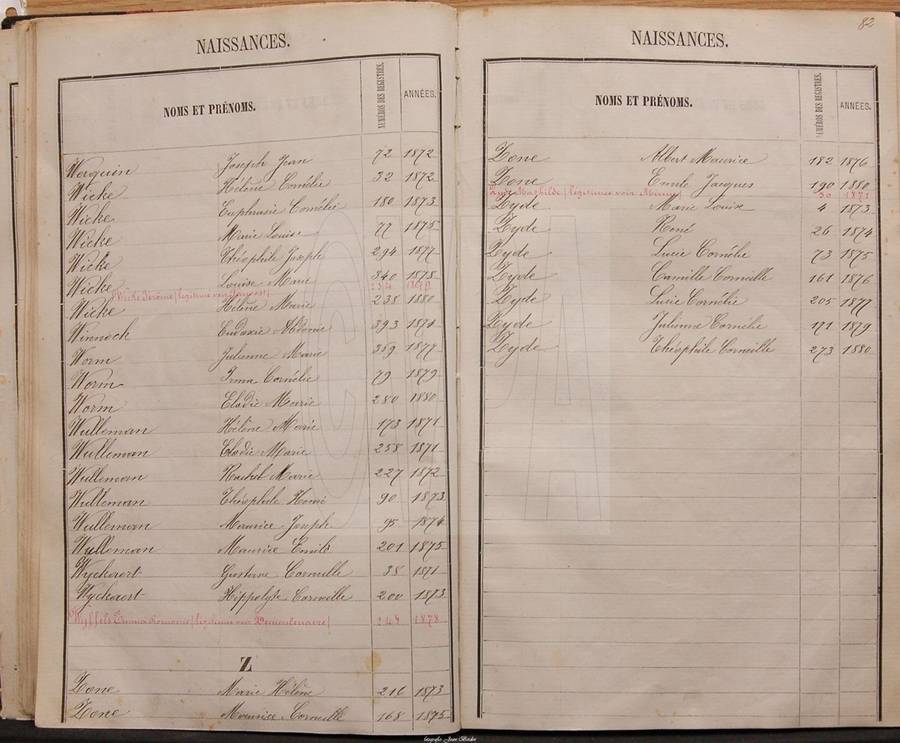 NAISSANCES.
NOMS ET PRÉNOMS. NUMÉROS DES REGISTRES. ANNÉES.
Werquin Joseph Jean 72 1872
Wicke Hélène Cornélie 32 1872
Wicke Euphrasie Cornélie 180 1873
Wicke Marie Louise 77 1875
Wicke Théophile Joseph 294 1877
Wicke Louise Marie 340 1878
Wicke Jérôme (légitimé voir 234
Wicke Hélène Marie 238 1880
Winnock Eudoxie 393 1874
Worm Julienne Marie 359 1877
Worm Irma Cornélie 79 1879
Worm Elodie Marie 280 1880
Wulleman Hélène Marie 173 1871
Wulleman Elodie Marie 258 1871
Wulleman Rachel Marie 227 1872
Wulleman Théophile Henri 90 1873
Wulleman Maurice Joseph 95 1874
Wulleman Maurice Emile 201 1875
Wyckaert Gustave Corneille 38 1871
Wyckaert Hippolyte Corneille 200 1873
Wyffels Emma Romanie (légitimée voir Demeulenaere) 248 1878
Z
Zone Marie Hélène 216 1873
Zone Maurice Corneille 168 1875
82
NAISSANCES.
NOMS ET PRÉNOMS. NUMÉROS DES REGISTRES. ANNÉES.
Zone Albert Maurice 182 1876
Zone Emile Jacques 190 1880
Zyde Mathilde (légitimée voir 50 1871
Zyde Marie Louise 4 1873
Zyde René 26 1874
Zyde Lucie Cornélie 73 1875
Zyde Camille Corneille 161 1876
Zyde Lucie Cornélie 205 1877
Zyde Julienne Cornélie 171 1879
Zyde Théophile Corneille 273 1880